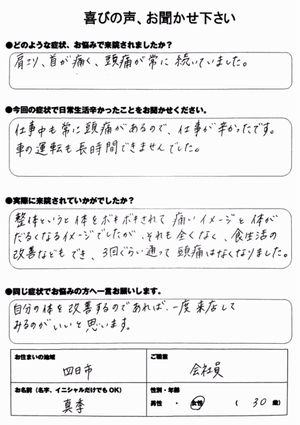 喜びの声、お聞かせ下さい
●どのような症状、お悩みで来院されましたか？
肩こり、首が痛く、頭痛が常に続いていました。
●今回の症状で日常生活辛かったことをお聞かせください。
仕事中も常に頭痛があるので、仕事が辛かったです。
車の運転も長時間できませんでした。
●実際に来院されていかがでしたか？
整体というと体をボキボキされて痛いイメージと体が
だるくなるイメージでしたが、それも全くなく、食生活の
改善などもでき、3回ぐらい通って頭痛はなくなりました。
●同じ症状でお悩みの方へ一言お願いします。
自分の体を改善するのであれば、一度来店して
みるのがいいと思います。
お住まいの地域
ご職業
四日市
会社員
お名前（名字、イニシャルだけでもOK）
性別・年齢
真季
男性・女性 （30歳）